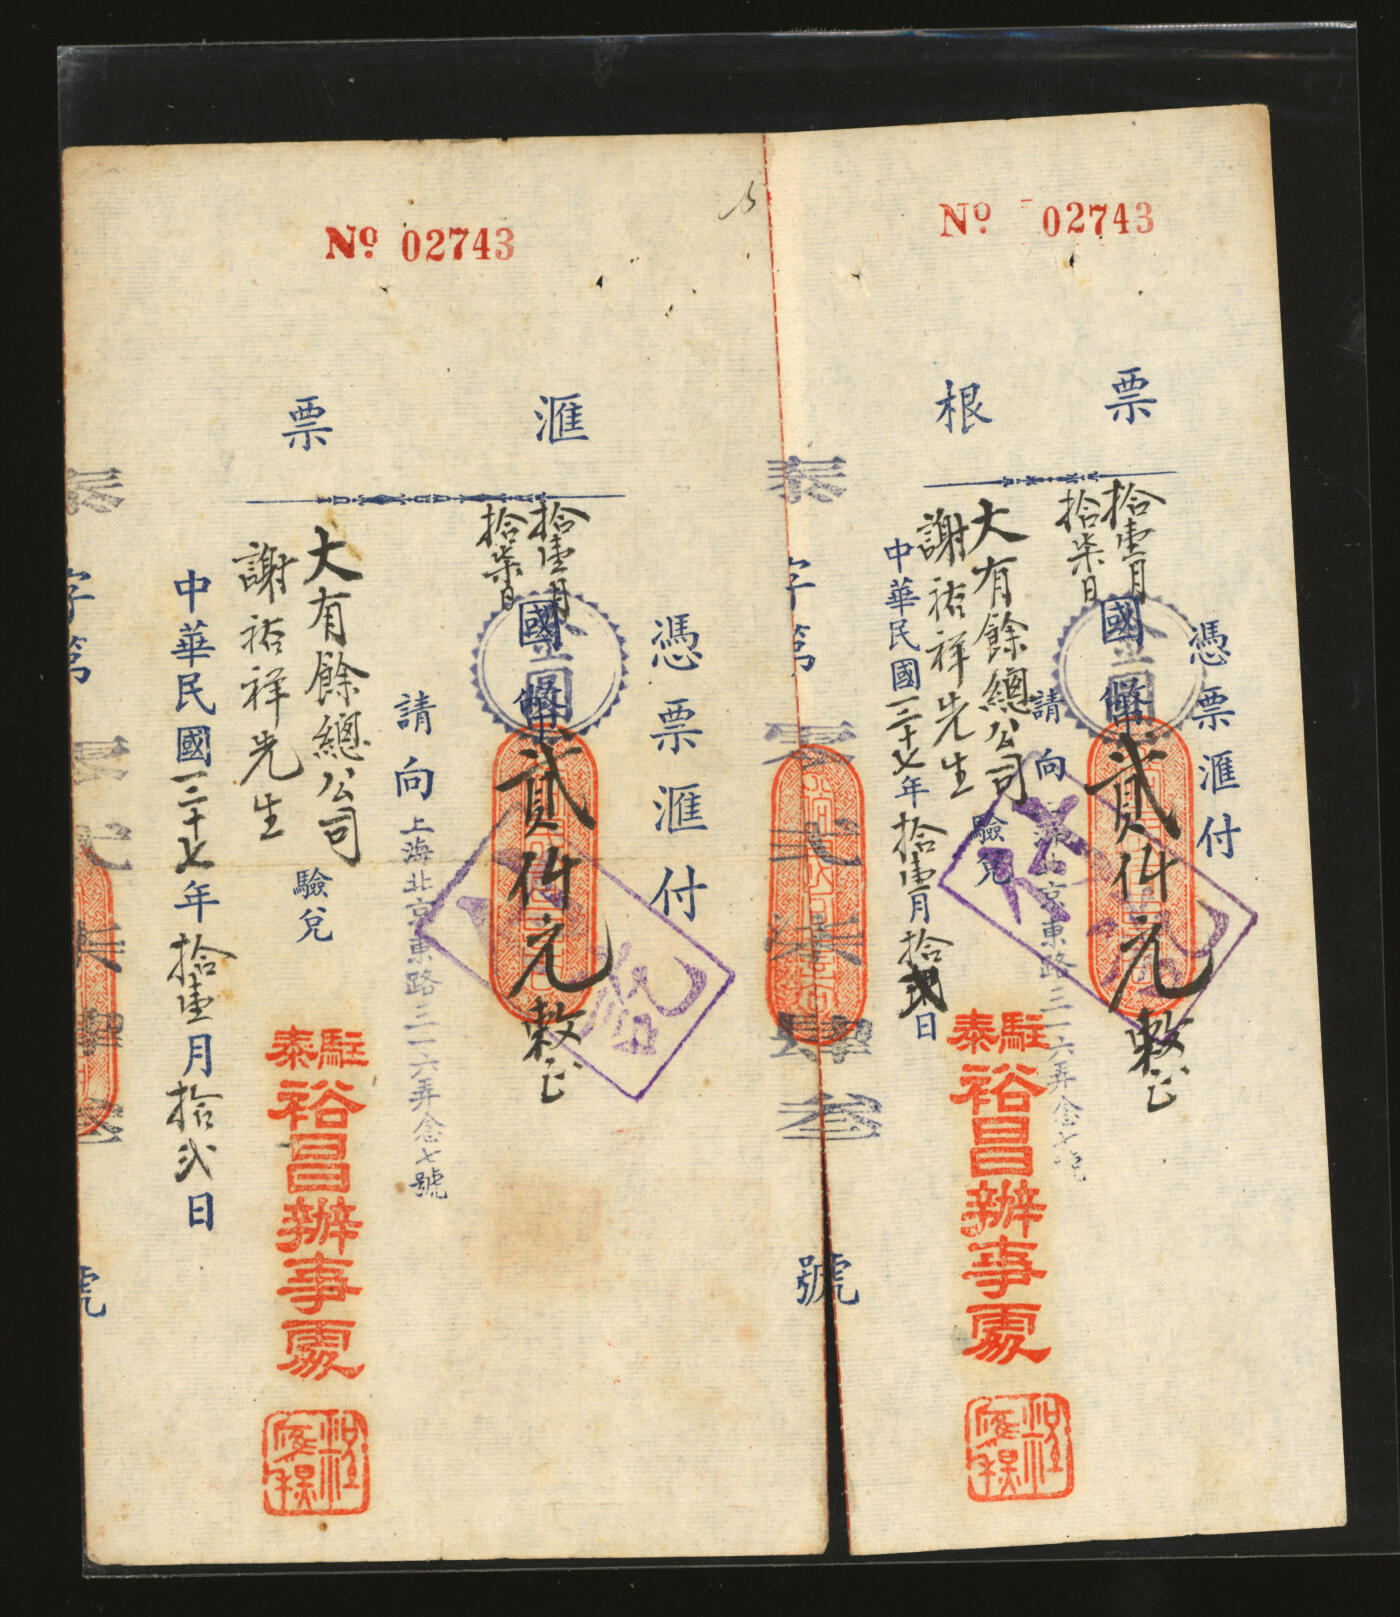 No 02743
票根
憑票匯付
拾壹月
拾柒日
國幣
金圓
貳仟元整
請向
上海北京東路三一六弄念七號
大有餘總公司
謝祐祥先生
驗兌
中華民國三十七年拾壹月拾貳日
駐泰
裕昌辦事處
泰字第零貳柒肆叁號
No 02743
滙票
憑票滙付
拾壹月
拾柒日
國幣
金圓
貳仟元整
請向
上海北京東路三一六弄念七號
大有餘總公司
謝祐祥先生
驗兌
駐泰
裕昌辦事處
中華民國三十七年拾壹月拾弍日
泰字第零弍柒肆叁號